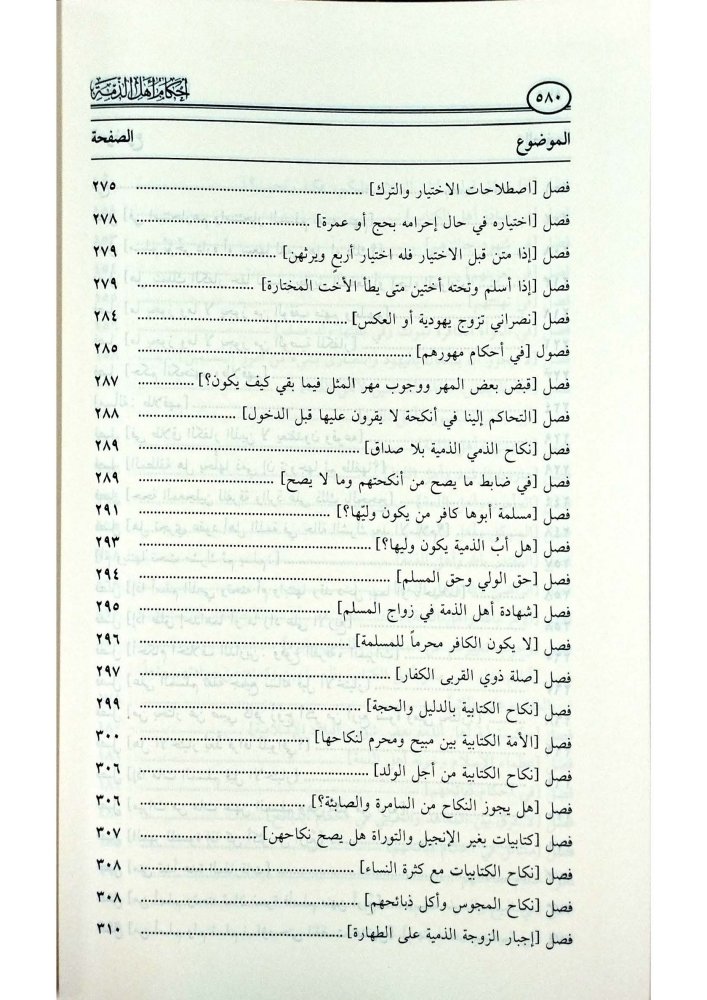 ٥٨٠ أحكام أهل الذمة
الموضوع الصفحة
فصل [اصطلاحات الاختيار والترك] ٢٧٥
فصل [اختياره في حال إحرامه بحج أو عمرة] ٢٧٨
فصل [إذا متن قبل الاختيار فله اختيار أربعٍ ويرثهن] ٢٧٩
فصل [إذا أسلم وتحته أختين متى يطأ الأخت المختارة] ٢٧٩
فصل [نصراني تزوج يهودية أو العكس] ٢٨٤
فصول [في أحكام مهورهم] ٢٨٥
فصل [قبض بعض المهر ووجوب مهر المثل فيما بقي كيف يكون؟] ٢٨٧
فصل [التحاكم إلينا في أنكحة لا يقرون عليها قبل الدخول] ٢٨٨
فصل [نكاح الذمي الذمية بلا صداق] ٢٨٩
فصل [في ضابط ما يصح من أنكحتهم وما لا يصح] ٢٨٩
فصل [مسلمة أبوها كافر من يكون وليّها؟] ٢٩١
فصل [هل أبُ الذمية يكون وليها؟] ٢٩٣
فصل [حق الولي وحق المسلم] ٢٩٤
فصل [شهادة أهل الذمة في زواج المسلم] ٢٩٥
فصل [لا يكون الكافر محرماً للمسلمة] ٢٩٦
فصل [صلة ذوي القربى الكفار] ٢٩٧
فصل [نكاح الكتابية بالدليل والحجة] ٢٩٩
فصل [الأمة الكتابية بين مبيح ومحرم لنكاحها] ٣٠٠
فصل [نكاح الكتابية من أجل الولد] ٣٠٦
فصل [هل يجوز النكاح من السامرة والصابئة؟] ٣٠٦
فصل [كتابيات بغير الإنجيل والتوراة هل يصح نكاحهن] ٣٠٧
فصل [نكاح الكتابيات مع كثرة النساء] ٣٠٨
فصل [نكاح المجوس وأكل ذبائحهم] ٣٠٨
فصل [إجبار الزوجة الذمية على الطهارة] ٣١٠